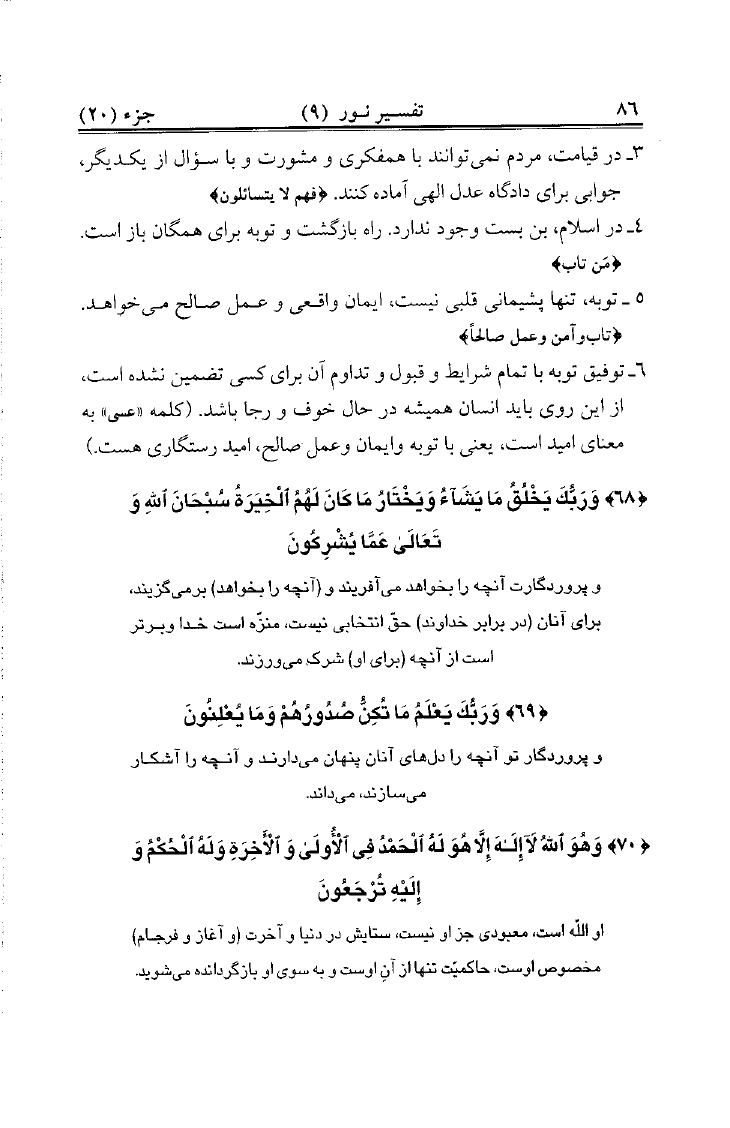 ٨٦ تفسیر نور (٩) جزء (٢٠)
٣ـ در قیامت، مردم نمی‌توانند با همفکری و مشورت و با سؤال از یکدیگر،
جوابی برای دادگاه عدل الهی آماده کنند. ﴿فهم لا یتسائلون﴾
٤ـ در اسلام، بن بست وجود ندارد. راه بازگشت و توبه برای همگان باز است.
﴿مَن تاب﴾
٥ ـ توبه، تنها پشیمانی قلبی نیست، ایمان واقعی و عمل صالح می‌خواهد.
﴿تاب و آمن وعمل صالحاً﴾
٦ـ توفیق توبه با تمام شرایط و قبول و تداوم آن برای کسی تضمین نشده است،
از این روی باید انسان همیشه در حال خوف و رجا باشد. (کلمه «عسی» به
معنای امید است، یعنی با توبه وایمان وعمل صالح، امید رستگاری هست.)
﴿٦٨﴾ وَرَبُّكَ يَخْلُقُ مَا يَشَآءُ وَيَخْتَارُ مَا كَانَ لَهُمُ ٱلْخِيَرَةُ سُبْحَانَ ٱللهِ وَ
تَعَالَىٰ عَمَّا يُشْرِكُونَ
و پروردگارت آنچه را بخواهد می‌آفریند و (آنچه را بخواهد) برمی‌گزیند،
برای آنان (در برابر خداوند) حقّ انتخابی نیست، منزّه است خدا وبرتر
است از آنچه (برای او) شرک می‌ورزند.
﴿٦٩﴾ وَرَبُّكَ يَعْلَمُ مَا تُكِنُّ صُدُورُهُمْ وَمَا يُعْلِنُونَ
و پروردگار تو آنچه را دل‌های آنان پنهان می‌دارند و آنچه را آشکار
می‌سازند، می‌داند.
﴿٧٠﴾ وَهُوَ ٱللهُ لَآ إِلَـٰهَ إِلَّا هُوَ لَهُ ٱلْحَمْدُ فِي ٱلْأُولَىٰ وَ ٱلْأَخِرَةِ وَلَهُ ٱلْحُكْمُ وَ
إِلَيْهِ تُرْجَعُونَ
او اللّه است، معبودی جز او نیست، ستایش در دنیا و آخرت (و آغاز و فرجام)
مخصوص اوست، حاکمیّت تنها از آنِ اوست و به سوی او بازگردانده می‌شوید.